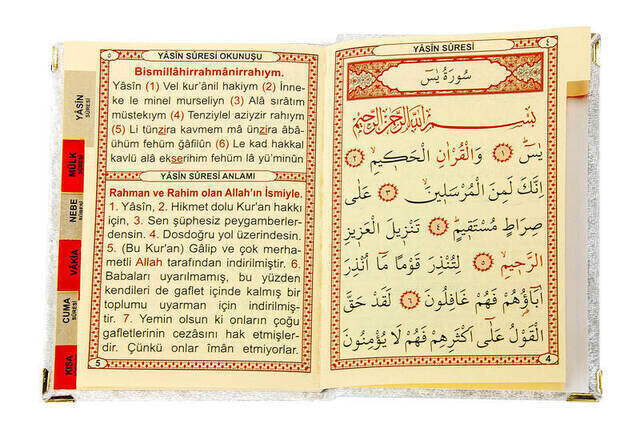 ٥
YÂSİN SÛRESİ OKUNUŞU
Bismillâhirrahmânirrahıym.
Yâsîn (1) Vel kur’ânil hakiym (2) İnne-
ke le minel murseliyn (3) Alâ sırâtım
müstekıym (4) Tenziylel aziyzir rahıym
(5) Li tünzira kavmem mâ ünzira âbâ-
ühüm fehüm ğâfilûn (6) Le kad hakkal
kavlü alâ ekserihim fehüm lâ yü’minûn
YÂSİN SÛRESİ ANLAMI
Rahman ve Rahim olan Allah’ın İsmiyle.
1. Yâsîn, 2. Hikmet dolu Kur’an hakkı
için, 3. Sen şüphesiz peygamberler-
densin. 4. Dosdoğru yol üzerindesin.
5. (Bu Kur’an) Gâlip ve çok merha-
metli Allah tarafından indirilmiştir. 6.
Babaları uyarılmamış, bu yüzden
kendileri de gaflet içinde kalmış bir
toplumu uyarman için indirilmiş-
tir. 7. Yemin olsun ki onların çoğu
gafletlerinin cezasını hak etmişler-
dir. Çünkü onlar îmân etmiyorlar.
5
YÂSİN
SÛRESİ
MÜLK
SÛRESİ
NEBE
SÛRESİ
VÂKIA
CUMA
SÛRESİ
KISA
YÂSİN SÛRESİ
٤
سُورَةُ يٰسۤ
بِسْمِ اللّٰهِ الرَّحْمٰنِ الرَّحِيمِ
يٰسۤ ﴿١﴾ وَالْقُرْاٰنِ الْحَكِيمِۙ ﴿٢﴾
اِنَّكَ لَمِنَ الْمُرْسَلِينَۙ ﴿٣﴾ عَلٰى
صِرَاطٍ مُسْتَقِيمٍۜ ﴿٤﴾ تَنْزِيلَ الْعَزِيزِ
الرَّحِيمِۙ ﴿٥﴾ لِتُنْذِرَ قَوْمًا مَٓا اُنْذِرَ
اٰبَٓاؤُ۬هُمْ فَهُمْ غَافِلُونَ ﴿٦﴾ لَقَدْ حَقَّ
الْقَوْلُ عَلٰٓى اَكْثَرِهِمْ فَهُمْ لَا يُؤْمِنُونَ
4